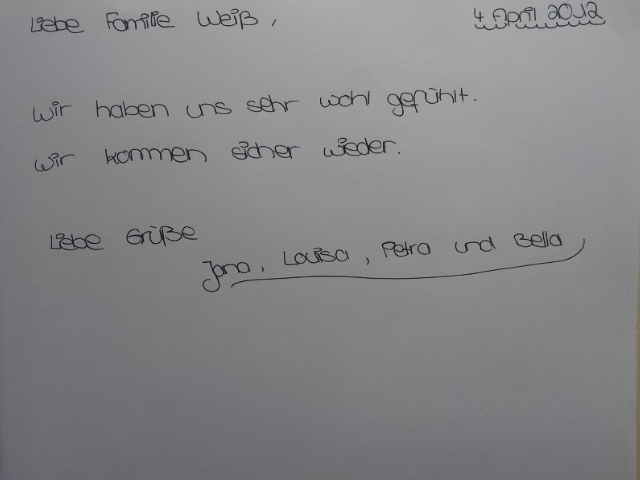 Liebe Familie Weiß, 4 April 2012
Wir haben uns sehr wohl gefühlt.
Wir kommen sicher wieder.
Liebe Grüße
Jana, Louisa, Petra und Bella